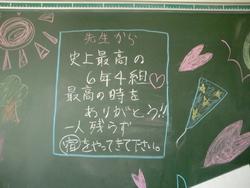 先生から
史上最高の
6年4組♡
最高の時を
ありがとう!!
一人残らず
宿をやってきて下さい。